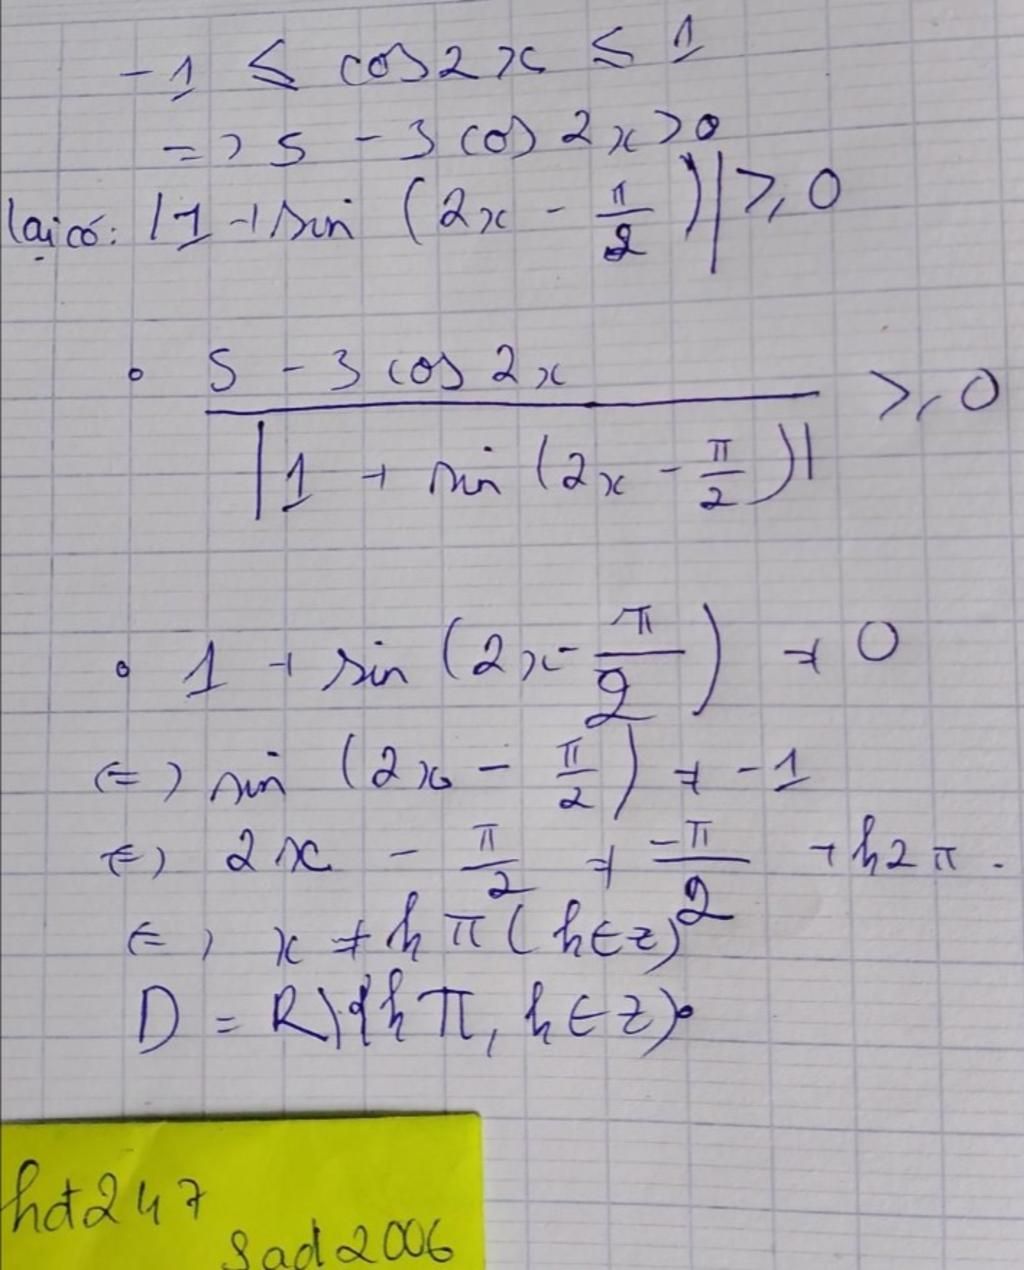 -1 ≤ cos2x ≤ 1
=> 5 - 3 cos 2x > 0
lại có: |1 + sin (2x - π/2)| ≥ 0
• (5 - 3 cos 2x) / |1 + sin (2x - π/2)| ≥ 0
• 1 + sin (2x - π/2) ≠ 0
<=> sin (2x - π/2) ≠ -1
<=> 2x - π/2 ≠ -π/2 + k2π.
<=> x ≠ kπ (k∈Z)
D = R\{kπ, k∈Z}.
hdt247
sad2006